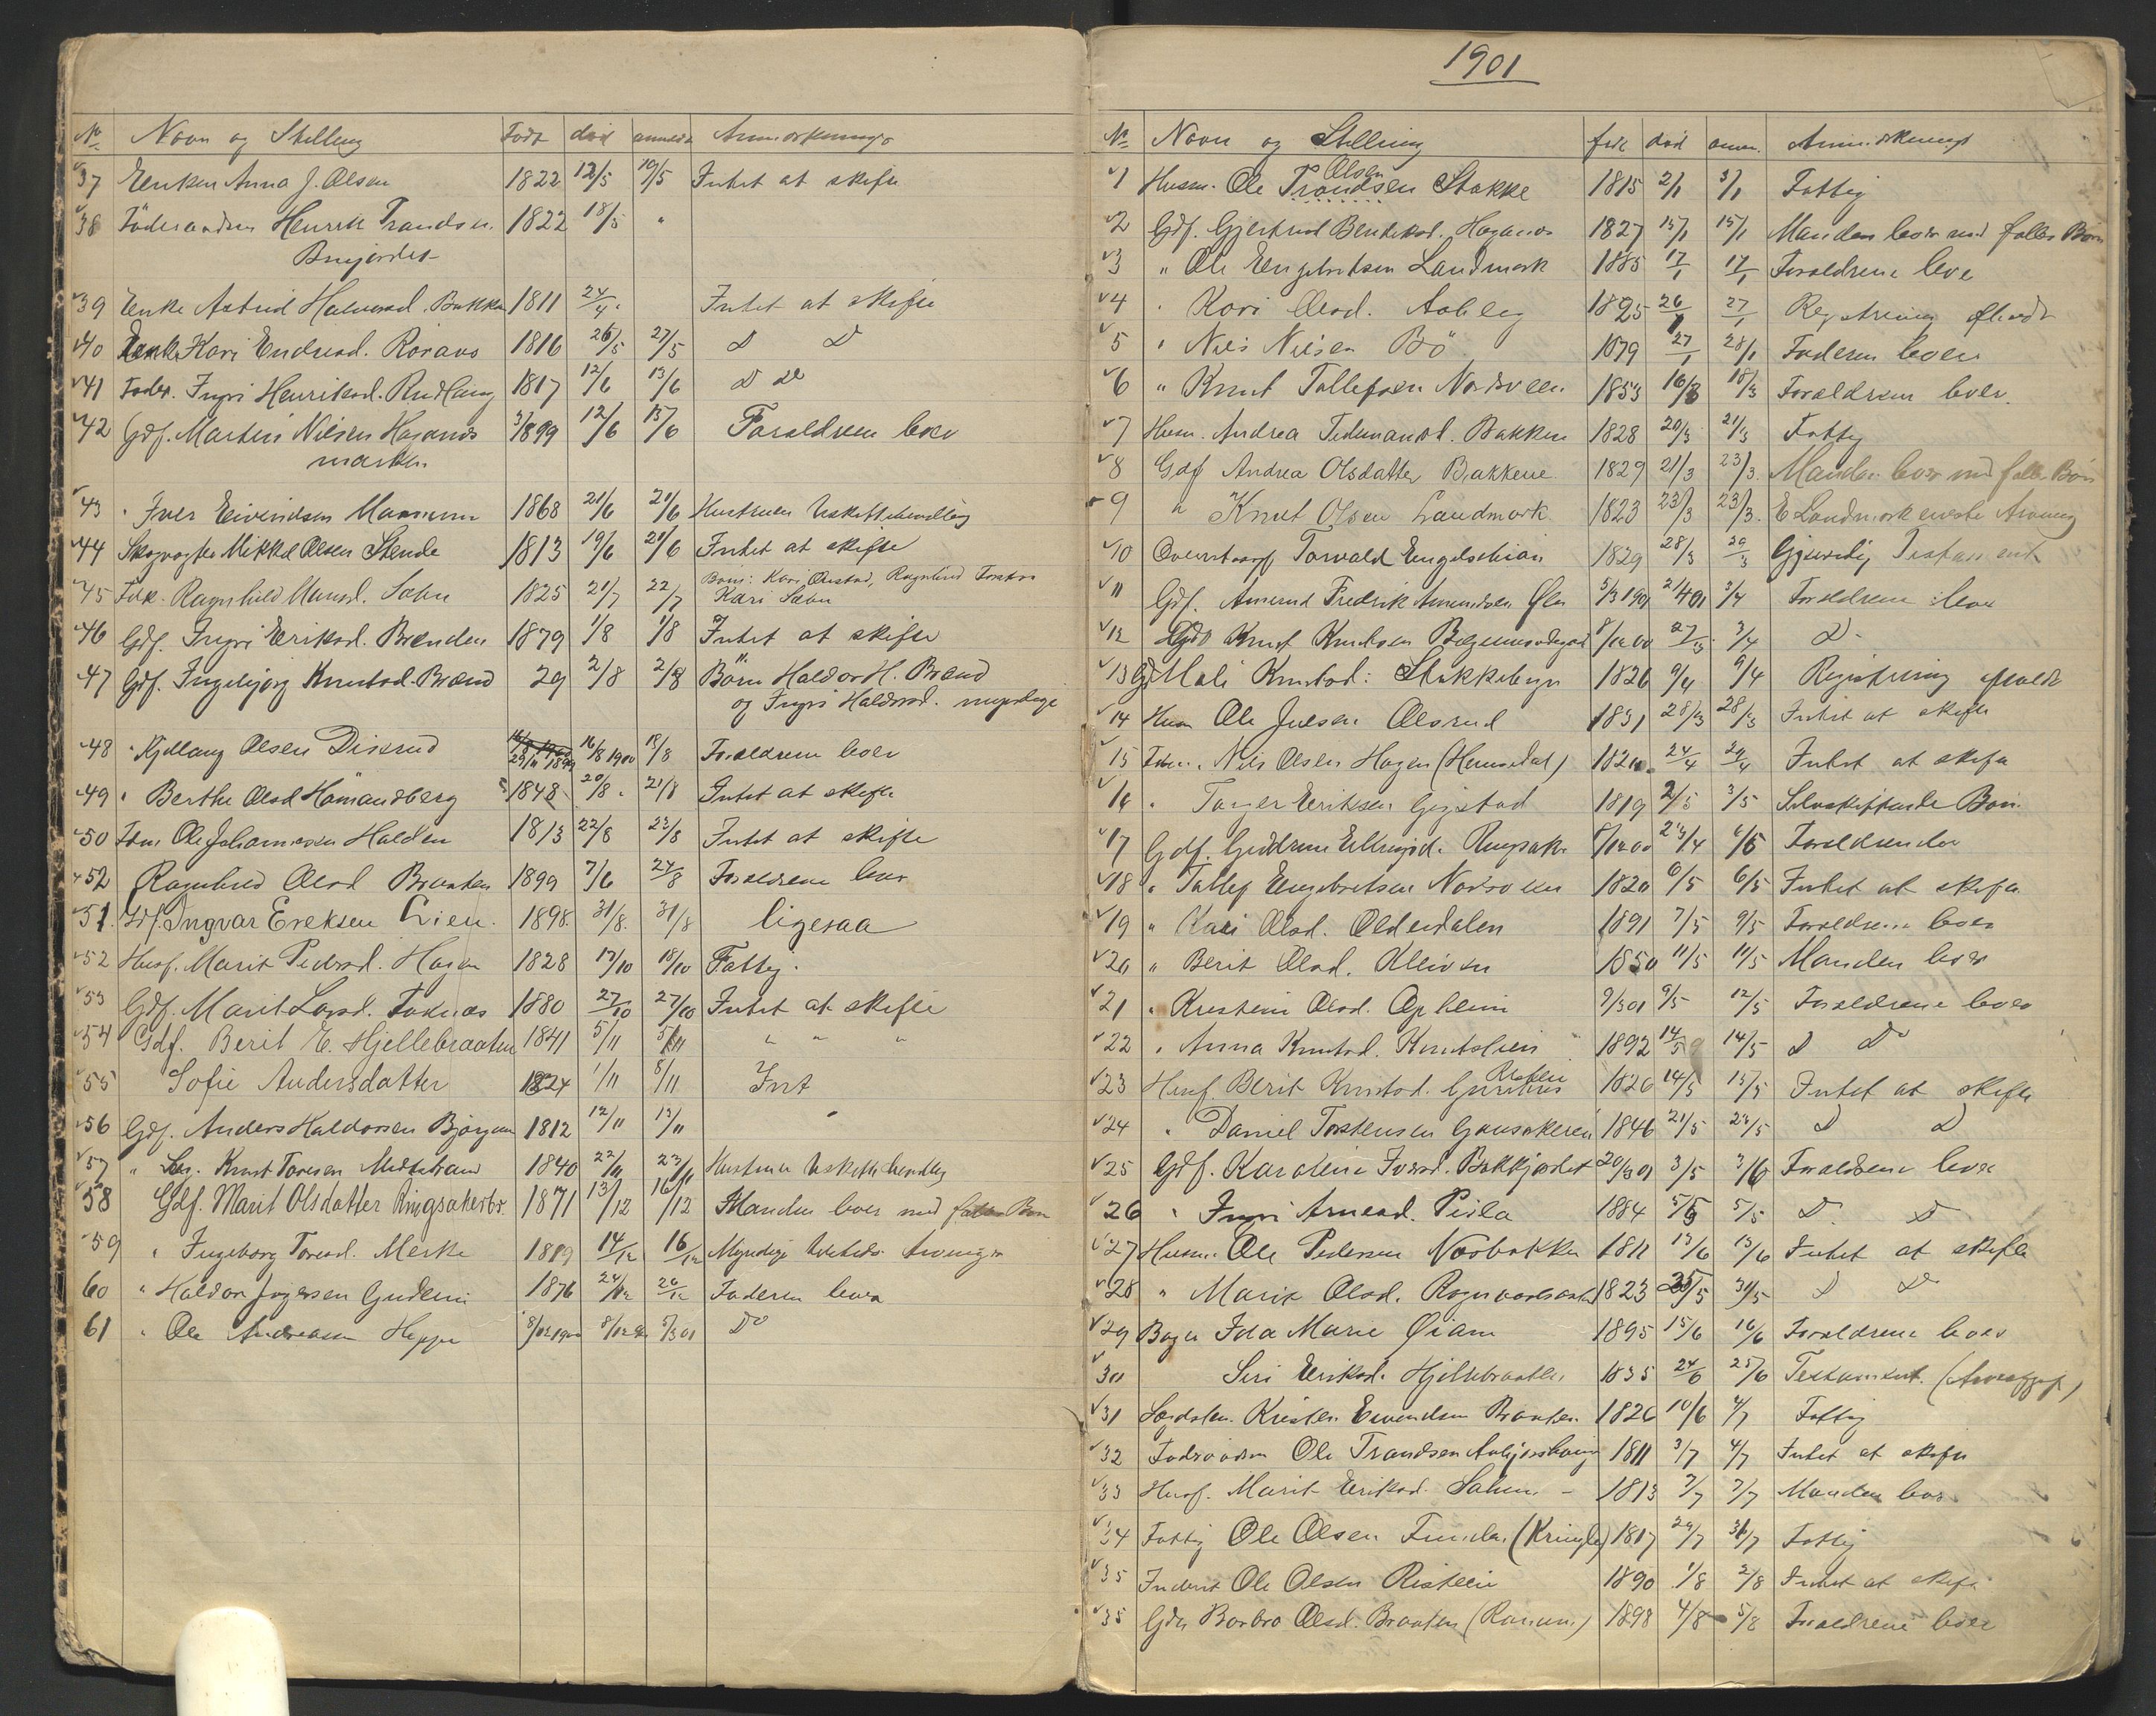 No Navn og Stilling Født död anmeldt Anmærkninger
37 Enken Anna J. Olsen 1822 12/5 19/5 Intet at skifte
38 Föderaadsm Henrik Trandsen 1822 18/5 "
39 Enke Astrid Halvorsd. Bakken 1811 24/4 Intet at skifte
40 Enke Kari Endresd. 1816 26/5 27/5 D D
41 Foder. Ingri Henriksd. 1817 12/6 13/6 D Do
42 Gdf. Martin Nilsen Haganæs 3/1899 12/6 15/6 Forældrene lever
marken
43 " Iver Eivindsen 1868 21/6 21/6 Hustruen Uskiftebevilling
44 Skogvogter Mikkel Olsen Stende 1813 19/6 20/6 Intet at skifte
45 Ragnhild 1825 21/7 22/7 Börn: Kari Ragnhild
Kari
46 Gdf. Ingri Eriksd. Brænden 1879 1/8 1/8 Intet at skifte
47 Gdf. Ingebjörg Knutsd. Brænd 29 2/8 2/8 Börn Haldor H. Brænd
og Ingri Haldorsd. myndige
48 " Kjellaug Olsen Diserud 29/11 1899 16/8 1900 18/8 Forældrene lever
49 " Berthe Olsd 1848 20/8 21/8 Intet at skifte
50 Fdm. Ole Johannesen Halden 1813 22/8 23/8 Intet at skifte
52 Ragnhild Olsd Braaten 1899 7/6 24/8 Forældrene lever
51. Gdf. Ingvar Ereksen Lien. 1898. 31/8. 31/8 ligesaa
52 Husf. Marit Pedersd. Hagen 1828 17/10 18/10 Fattig.
53 Gdf. Marit Larsd. 1880 27/10 27/10 Intet at skifte
54 Gdf. Berit E. Hjellebraaten 1841 5/11 5/11 " " "
55 Sofie Andersdatter 1824 1/11 8/11 Int
56 Gdf. Anders Haldorsen Björgum 1812 12/11 13/11 "
57 " Knut Toresen 1840 22/11 23/11 Hustruen Uskiftebevilling
58 Gdf. Marit Olsdatter Ringsakerbr. 1871 13/12 16/12 Manden lever med fælles Börn
59 " Ingeborg Toresd. Merke 1819 14/12 16/12 Myndige Arvinger
60 " Haldor Gudem 1876 24/12 26/12 Faderen lever
61 " Ole Andreasen 8/12 1900 8/12 5/3 01 Do
1901
No Navn og Stilling født död anm. Anmærkninger
1 Husm. Ole Trondsen Olsen Stakke 1815 2/1 3/1 Fattig
2 Gdf. Gjertrud Bendiksd. Haganæs 1827 15/1 15/1 Manden lever med fælles Börn
3 " Ole Engebretsen Landmark 1885 17/1 17/1 Forældrene leve
4 " Kari Olesd. Aaberg 1895 26/1 27/1 Registrering afholdt
5 " Nils Nilsen Bö 1879 27/1 28/1 Faderen lever
6 " Knut Tollefsen Nordveen 1853 16/3 18/3 Forældrene lever.
7 Husm. Andrea Tidemansd. Bakken 1828 20/3 21/3 Fattig
8 Gdf Andrea Olsdatter Bakkene 1829 21/3 23/3. Manden lever med fælles Börn
9 " Knut Olsen Landmark 1823 23/3 23/3. E Landmark eneste Arving
10 Torvald Engelschiøn 1829 28/3 29/3 Gjensidig Testament
11 Gdf. Amund Fredrik Amundsen 5/3 1901 2/4 01 3/4 Forældrene leve
12 Gdf Knut Knutsen 8/12 00 27/3 3/4 D-
13 Gdf Mali Knutsd: Stakkebryn 1826 9/4 9/4 Registrering afholdt
14 Husm Ole Juelsen Olsrud 1831 28/3 28/3 Intet at skifte
15 Nils Olsen Hagen (Hemsedal) 1820 24/4 29/4 Intet at skifte
16 " Eriksen 1819 2/5 3/5 Selvskiftende Börn.
17 Gdf. Gudrun 8/12 00 23/4 6/5 Forældrene lever
18 " Tollef Engebretsen Nordveen 1820 6/5 6/5 Intet at skifte
19 " Kari Olsd. Olderdalen 1891 7/5 9/5 Forældrene lever
20 " Berit Olsd. Kleiven 1850 11/5 11/5 Manden lever
21 " Kristine Olsd. Opheim 9/3 01 9/5 12/5 Forældrene lever
22 " Anna Knutsd. Knutslien 1892 14/5 14/5 D Do
23 Husf. Berit Knutsd. 1826 14/5 15/5 Intet at skifte
24 " Daniel Torstensen Gunsakeren 1846 21/5 23/5 D D
25 Gdf. Karoline Iversd. Bækkjordet 20/3 01 3/5 3/6 Forældrene leve
26 " Ingri Arnesd. Piila 1884 5/5 5/5 D D
27 Husm. Ole Pedersen Norbakken 1811 13/6 15/6 Intet at skifte
28 " Marit Olsd. 1823 25/5 31/5 D Do
29 Bager Ida Marie Øiam 1895 15/6 16/6 Forældrene lever
30 Siri Eriksd. Hjellebraaten 1835 24/6 25/6 Testament.
31 Kristen Eivindsen Braaten 1826 10/6 4/7 Fattig
32 Foderaadsm Ole Trandsen 1811 3/7 4/7 Intet at skifte
33 Husf. Marit Eriksd. 1813 7/7 7/7 Manden lever.
34 Fattig Ole Olsen (Kringla) 1817 29/7 31/7 Fattig
35 Inderst Ole Olsen Ristein 1890 1/8 2/8 Intet at skifte
35 Gdf Barbro Olsd. Braaten 1898 4/8 5/8 Forældrene lever